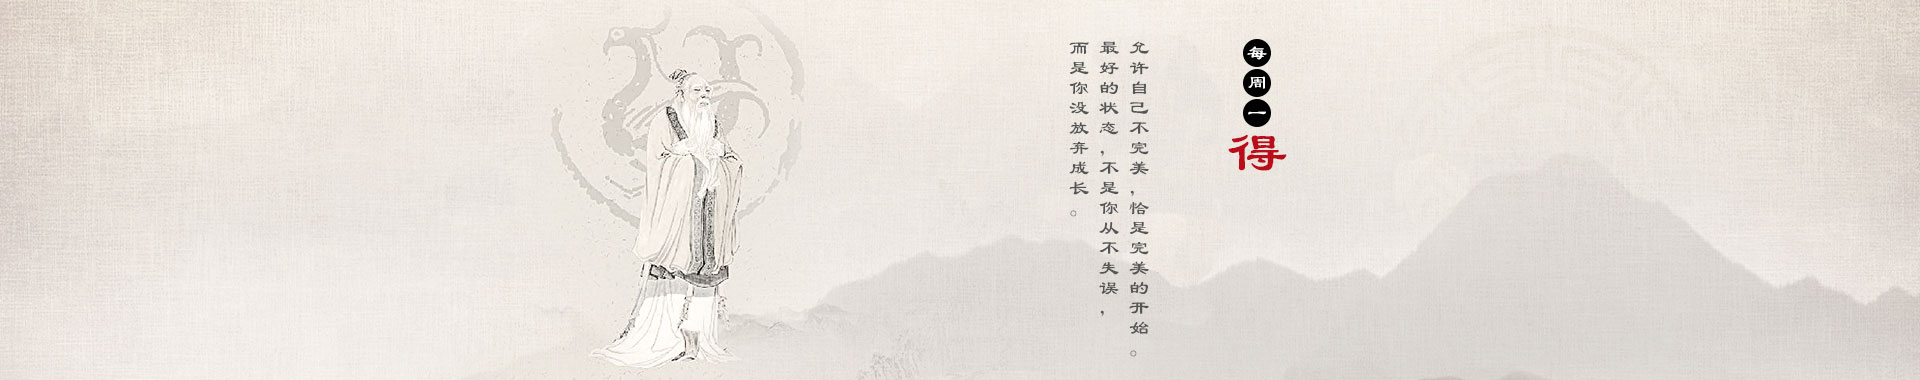 每周一得
允许自己不完美，恰是完美的开始。
最好的状态，不是你从不失误，
而是你没放弃成长。